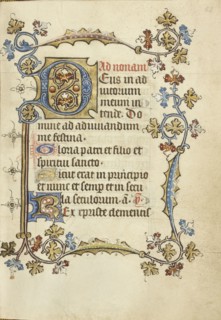 Ad nonam
Deus in ad
iutorium
meum in
tende. Do
mine ad adiuuandum
me festina.
Gloria patri et filio et
spiritui sancto.
Sicut erat in principio
et nunc et semp et in secu
la seculorum. a.
Ex xpiste clemens